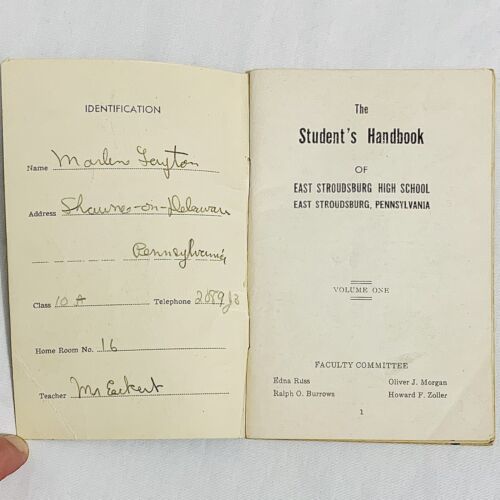 IDENTIFICATION
Name Marlen Layton
Address Shawnee-on-Delaware
Pennsylvania
Class 10 A Telephone 2089J3
Home Room No. 16
Teacher Mr Eckert
The
Student's Handbook
OF
EAST STROUDSBURG HIGH SCHOOL
EAST STROUDSBURG, PENNSYLVANIA
VOLUME ONE
FACULTY COMMITTEE
Edna Russ Oliver J. Morgan
Ralph O. Burrows Howard F. Zoller
1